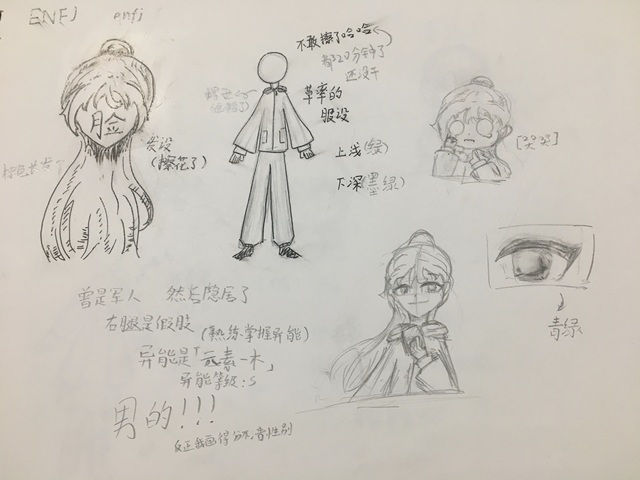 ENFJ enfj
不敢擦了哈哈
都20分钟了
还没干
草率的
服设
脸
发设
(擦花了)
棕色长发
[哭哭]
上浅(绿)
下深(墨绿)
青绿
曾是军人 然后隐居了
右腿是假肢
(熟练掌握异能)
异能是「元素—木」
异能等级:S
男的!!!
反正我画得分不清性别